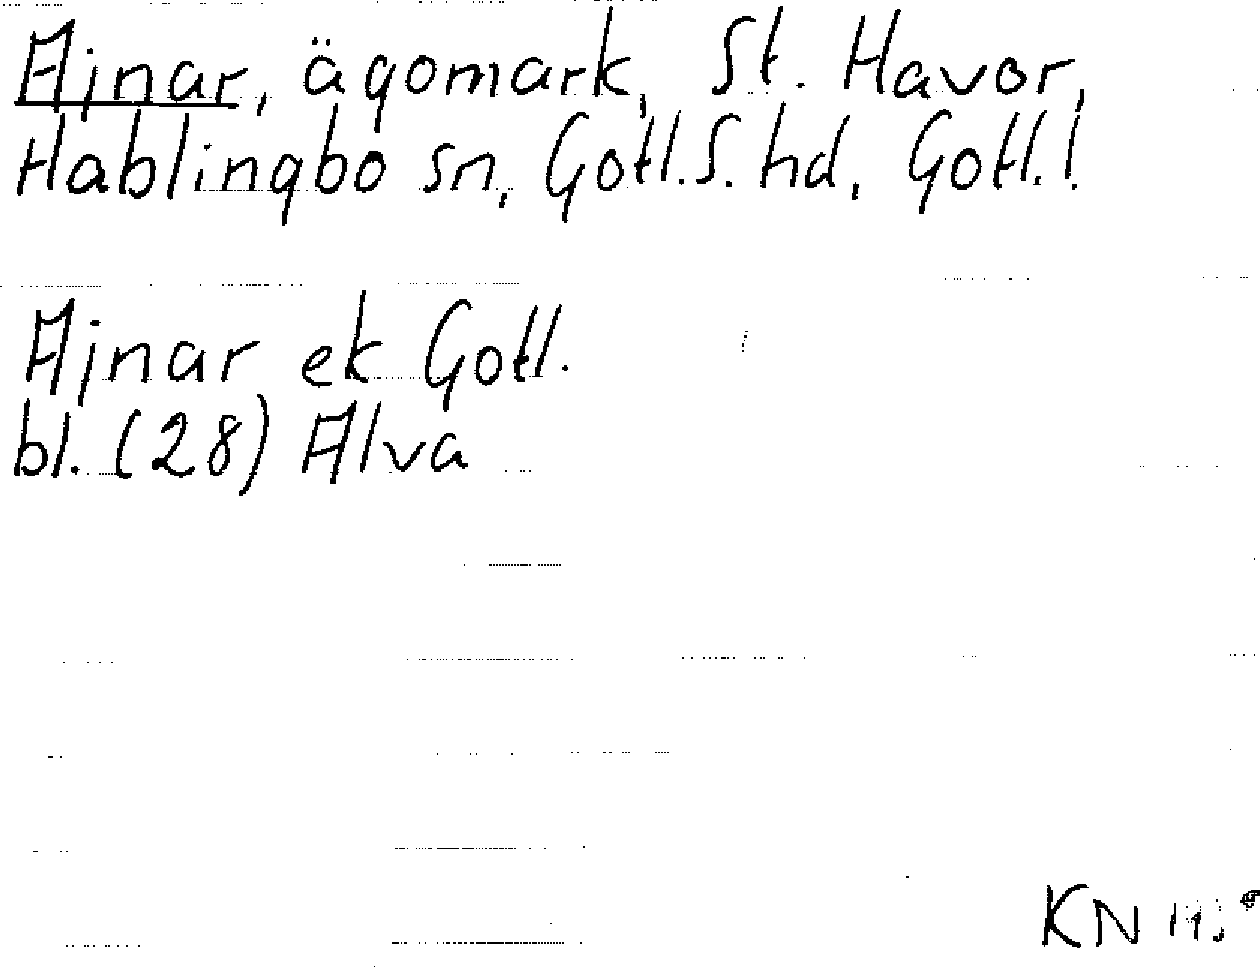 Ajnar, ägomark, St. Havor,
Hablingbo sn, Gotl.S. hd, Gotl.!
Ajnar ek Gotl.
bl. (28) Alva
KN